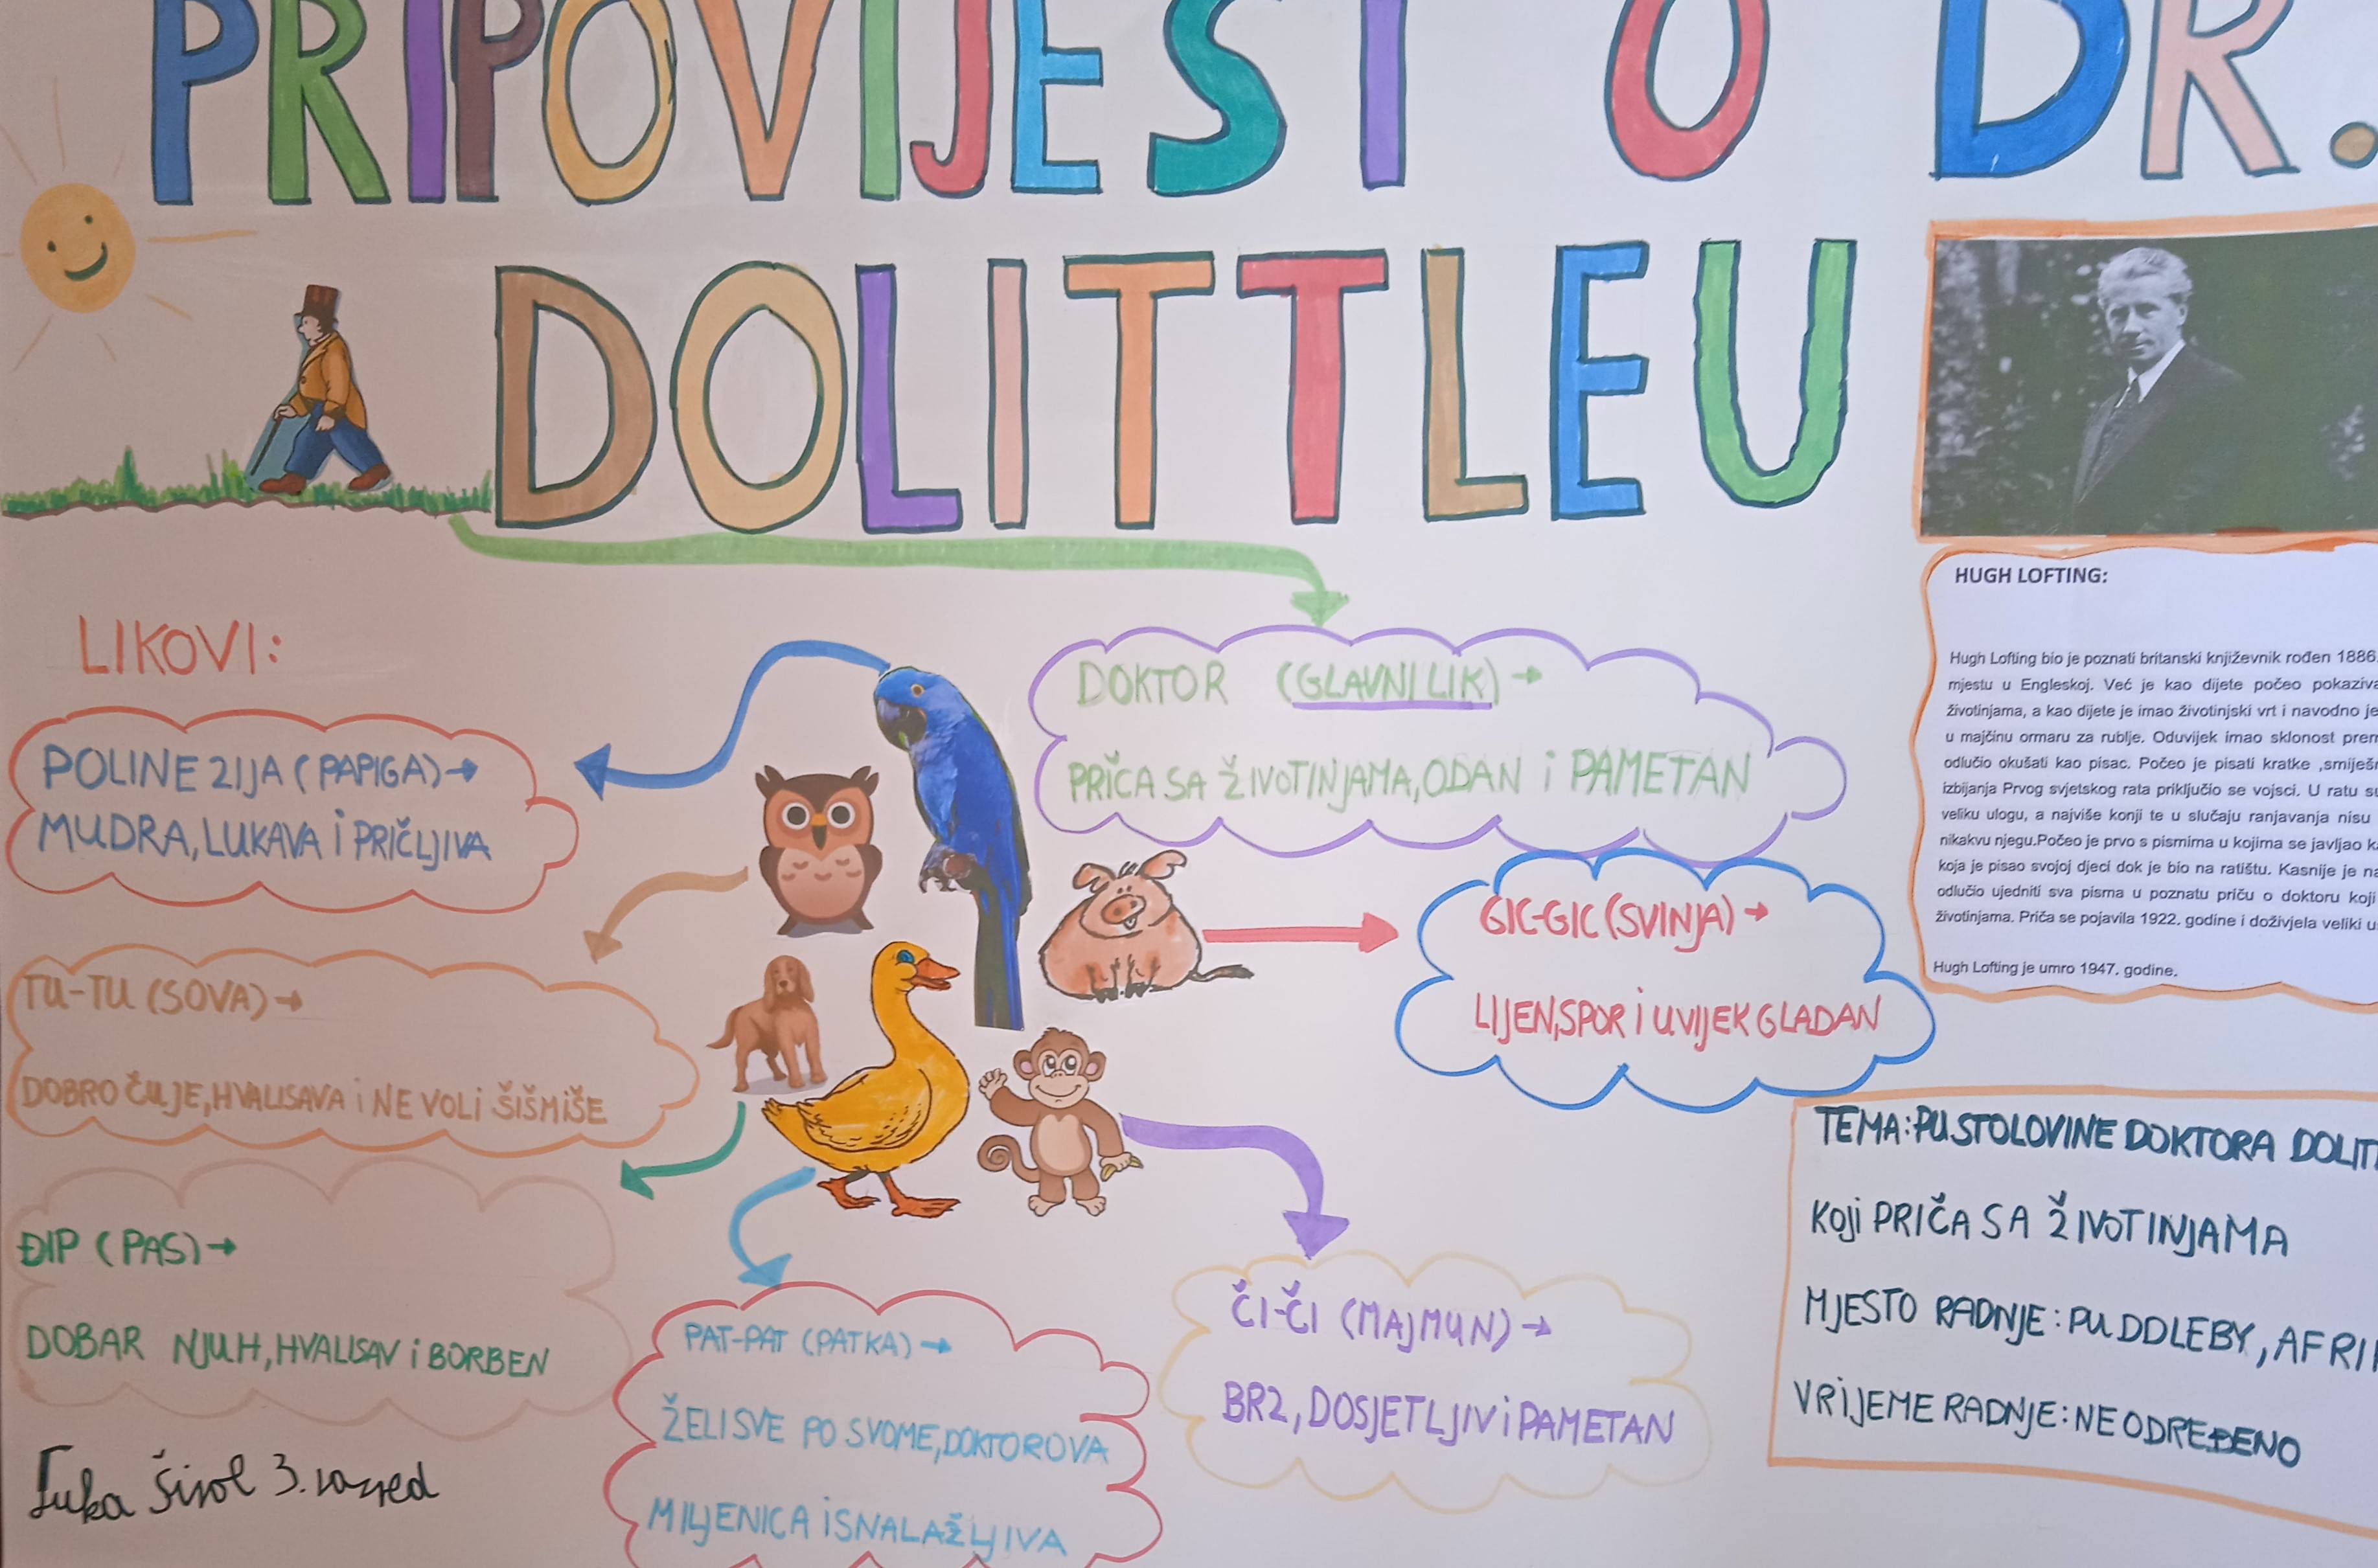 PRIPOVIJEST O DR.
DOLITTLEU
LIKOVI:
POLINEZIJA (PAPIGA)→
MUDRA, LUKAVA i PRIČLJIVA
TU-TU (SOVA)→
DOBRO ČUJE, HVALISAVA i NE VOLi ŠIŠMiŠE
ĐIP (PAS)→
DOBAR NJUH, HVALISAV i BORBEN
3. razred
DOKTOR (GLAVNI LIK)→
PRIČA SA ŽIVOTINJAMA, ODAN i PAMETAN
GIC-GIC (SVINJA)→
LIJEN, SPOR i UVIJEK GLADAN
PAT-PAT (PATKA)→
ŽELI SVE PO SVOME, DOKTOROVA
MILJENICA i SNALAŽLJIVA
ČI-ČI (MAJMUN)→
BRZ, DOSJETLJIV i PAMETAN
HUGH LOFTING:
Hugh Lofting bio je poznati britanski književnik rođen 1886
mjestu u Engleskoj. Već je kao dijete počeo
životinjama, a kao dijete je imao životinjski vrt i navodno je
u majčinu ormaru za rublje. Oduvijek imao sklonost
odlučio okušati kao pisac. Počeo je pisati kratke ,
izbijanja Prvog svjetskog rata priključio se vojsci. U ratu
veliku ulogu, a najviše konji te u slučaju ranjavanja nisu
nikakvu njegu.Počeo je prvo s pismima u kojima se javljao
koja je pisao svojoj djeci dok je bio na ratištu. Kasnije je
odlučio ujedniti sva pisma u poznatu priču o doktoru koji
životinjama. Priča se pojavila 1922. godine i doživjela veliki
Hugh Lofting je umro 1947. godine.
TEMA: PUSTOLOVINE DOKTORA
Koji PRIČA SA ŽIVOTINJAMA
MJESTO RADNJE: PUDDLEBY,
VRIJEME RADNJE: NEODREĐENO